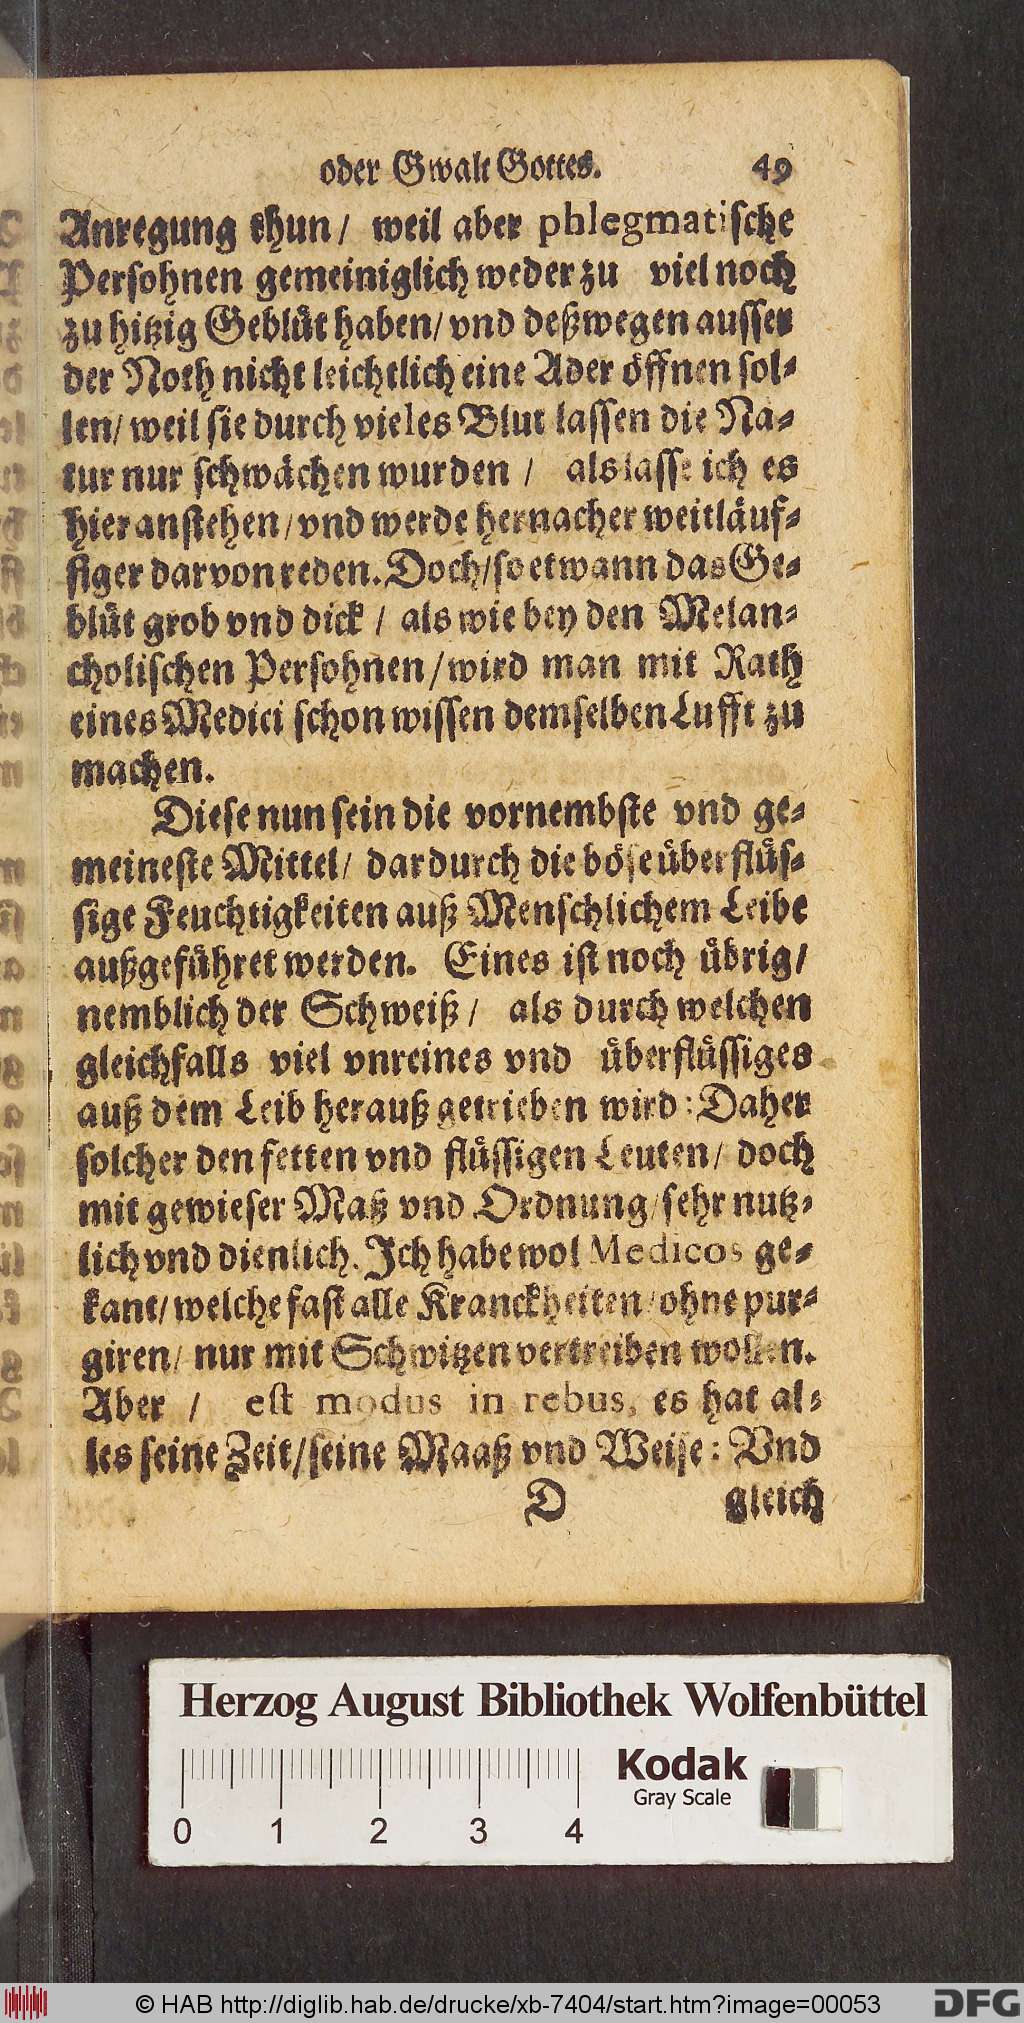 oder Gwalt Gottes. 49
Anregung thun / weil aber phlegmatische
Persohnen gemeiniglich weder zu viel noch
zu hitzig Geblüt haben / vnd deßwegen ausser
der Noth nicht leichtlich eine Ader öffnen sol-
len / weil sie durch vieles Blut lassen die Na-
tur nur schwächen wurden / als lasse ich es
hier anstehen / vnd werde hernacher weitläuf-
figer darvon reden. Doch / so etwann das Ge-
blüt grob vnd dick / als wie bey den Melan-
cholischen Persohnen / wird man mit Rath
eines Medici schon wissen demselben Lufft zu
machen.
Diese nun sein die vornembste vnd ge-
meineste Mittel / dardurch die böse überflüs-
sige Feuchtigkeiten auß Menschlichem Leibe
außgeführet werden. Eines ist noch übrig /
nemblich der Schweiß / als durch welchen
gleichfalls viel vnreines vnd überflüssiges
auß dem Leib herauß getrieben wird : Daher
solcher den fetten vnd flüssigen Leuten / doch
mit gewieser Maß vnd Ordnung / sehr nutz-
lich vnd dienlich. Ich habe wol Medicos ge-
kant / welche fast alle Kranckheiten / ohne pur-
giren / nur mit Schwitzen vertreiben wollen.
Aber / est modus in rebus, es hat al-
les seine Zeit / seine Maaß vnd Weise : Vnd
D gleich
Herzog August Bibliothek Wolfenbüttel
Kodak
Gray Scale
0 1 2 3 4
© HAB http://diglib.hab.de/drucke/xb-7404/start.htm?image=00053
DFG